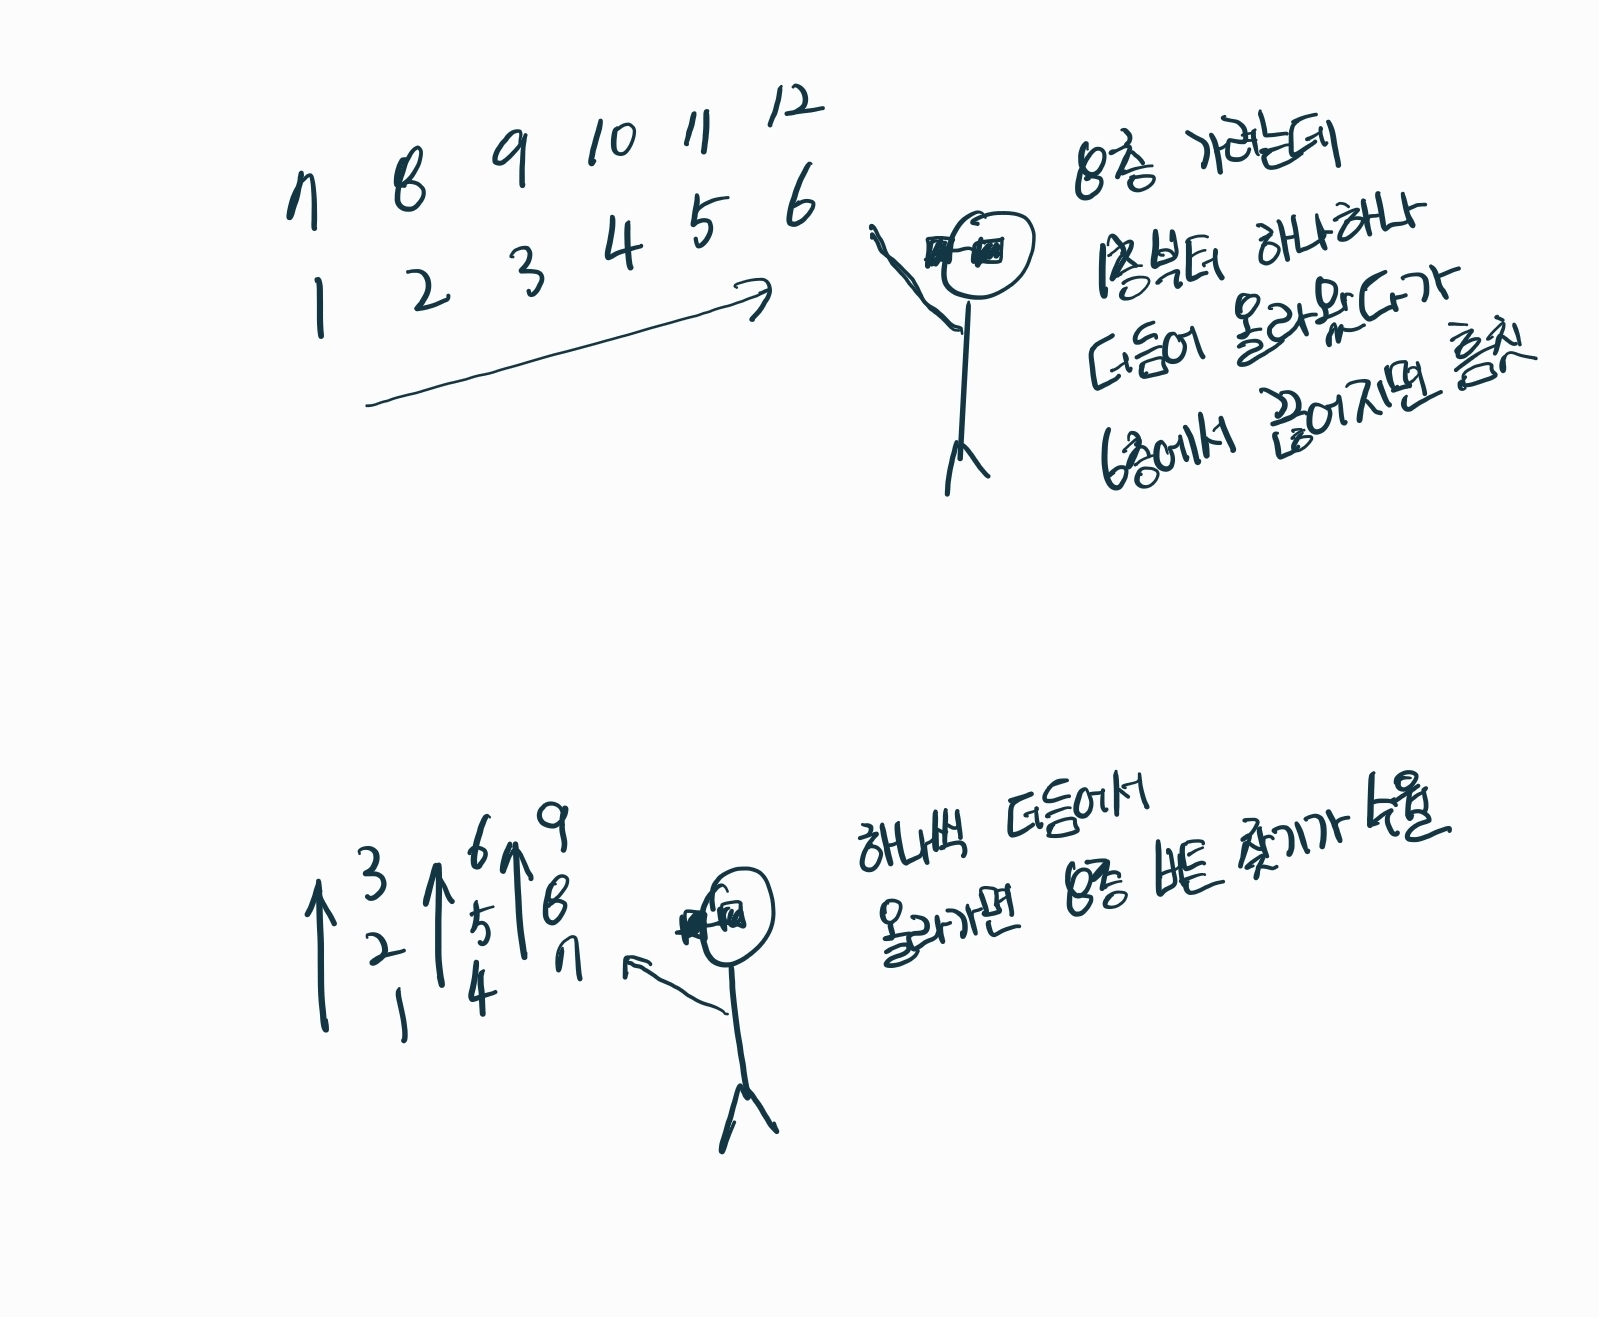 7 8 9 10 11 12
1 2 3 4 5 6
8층 가려는데
1층부터 하나하나
더듬어 올라왔다가
6층에서 끊어지면 흠칫
3 6 9
2 5 8
1 4 7
하나씩 더듬어서
올라가면 8층 버튼 찾기가 수월